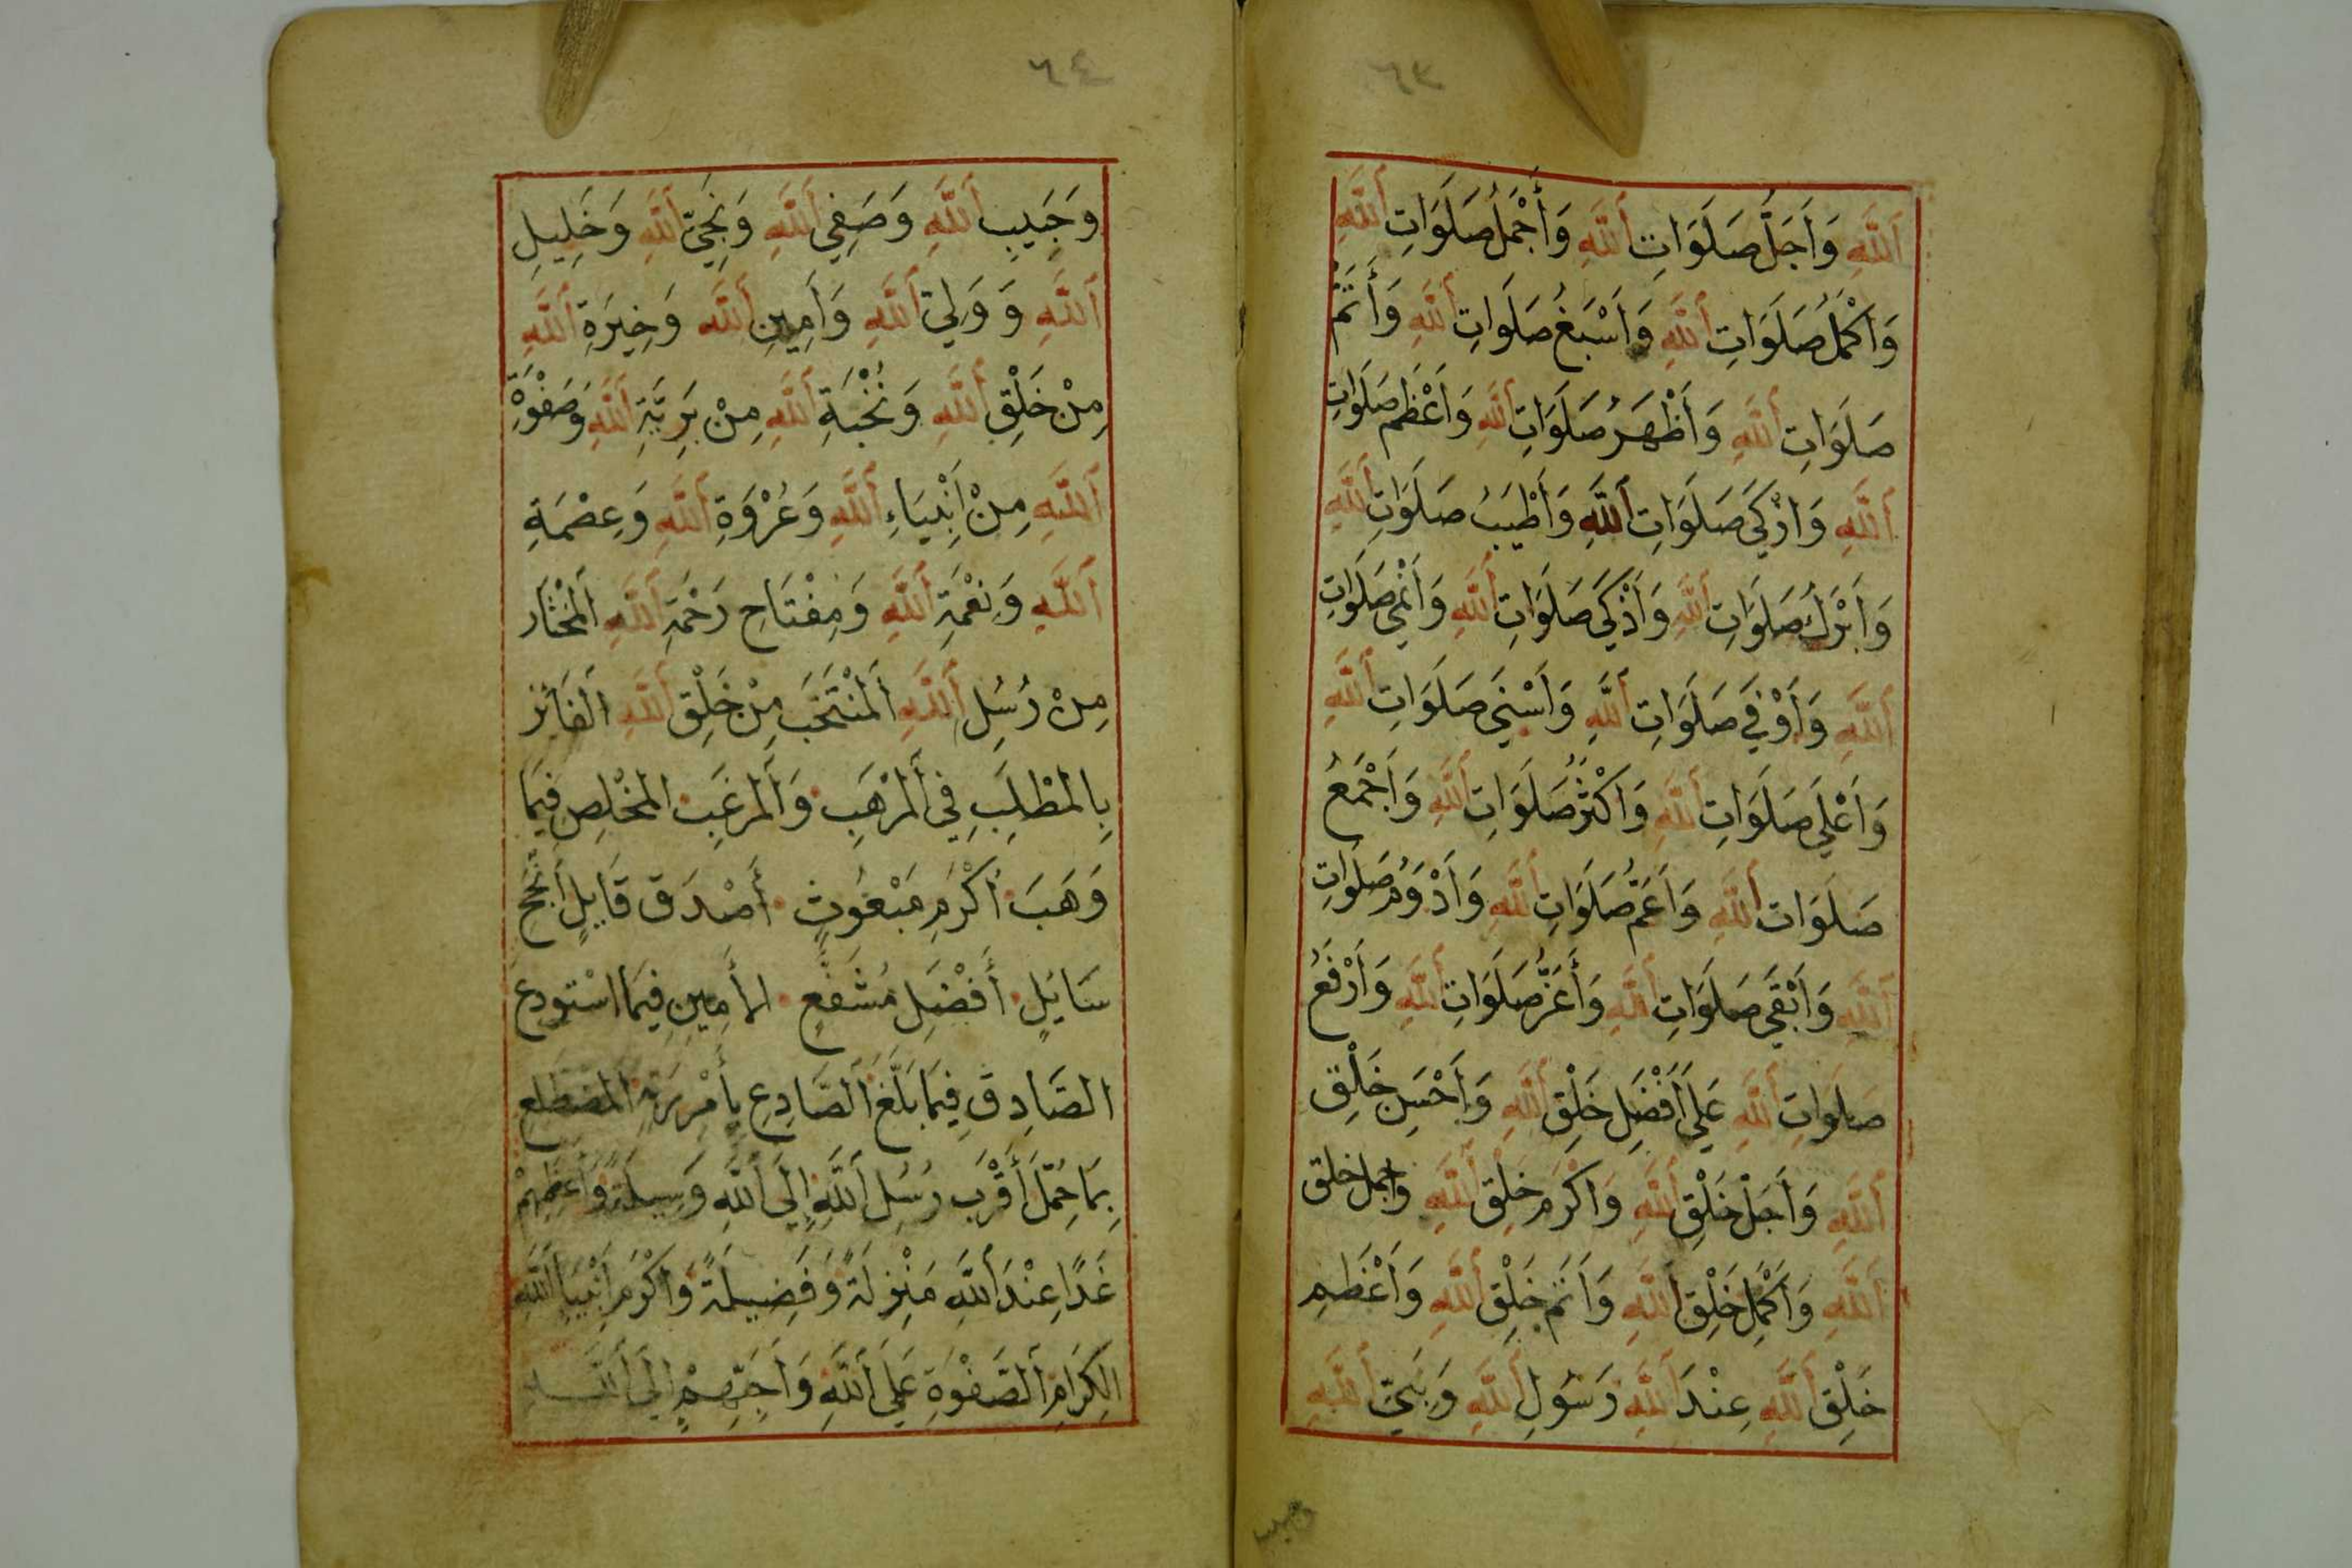 ٦٣
اَللَّهِ وَاَجَلُّ صَلَوَاتِ اَللَّهِ وَأَجْمَلُ صَلَوَاتِ اَللَّهِ
وَاَكْمَلُ صَلَوَاتِ اَللَّهِ وَاَسْبَغُ صَلَوَاتِ اَللَّهِ وَأَتَمُّ
صَلَوَاتِ اَللَّهِ وَأَظْهَرُ صَلَوَاتِ اَللَّهِ وَاَعْظَمُ صَلَوَاتِ
اَللَّهِ وَاَذْكَى صَلَوَاتِ اَللَّهِ وَأَطْيَبُ صَلَوَاتِ اَللَّهِ
وَاَبْرَكُ صَلَوَاتِ اَللَّهِ وَأَذْكَى صَلَوَاتِ اَللَّهِ وَأَنْمَى صَلَوَاتِ
اَللَّهِ وَأَوْفَى صَلَوَاتِ اَللَّهِ وَاَسْنَى صَلَوَاتِ اَللَّهِ
وَاَعْلَى صَلَوَاتِ اَللَّهِ وَاَكْثَرُ صَلَوَاتِ اَللَّهِ وَاَجْمَعُ
صَلَوَاتِ اَللَّهِ وَاَعَمُّ صَلَوَاتِ اَللَّهِ وَأَدْوَمُ صَلَوَاتِ
اَللَّهِ وَأَبْقَى صَلَوَاتِ اَللَّهِ وَأَعَزُّ صَلَوَاتِ اَللَّهِ وَأَرْفَعُ
صَلَوَاتِ اَللَّهِ عَلَى أَفْضَلِ خَلْقِ اَللَّهِ وَأَحْسَنِ خَلْقِ
اَللَّهِ وَأَجَلِّ خَلْقِ اَللَّهِ وَاَكْرَمِ خَلْقِ اَللَّهِ واجمل خلق
اَللَّهِ وَاَكْمَلِ خَلْقِ اَللَّهِ وَاَتَمِّ خَلْقِ اَللَّهِ وَأَعْظَمِ
خَلْقِ اَللَّهِ عِنْدَ اَللَّهِ رَسُولِ اَللَّهِ وَنَبِيِّ اَللَّهِ
وحبيب
٦٤
وَحَبِيبِ اَللَّهِ وَصَفِيِّ اَللَّهِ وَنَجِيِّ اَللَّهِ وَخَلِيلِ
اَللَّهِ وَوَلِيِّ اَللَّهِ وَاَمِينِ اَللَّهِ وَخِيَرَةِ اَللَّهِ
مِنْ خَلْقِ اَللَّهِ وَنُخْبَةِ اَللَّهِ مِنْ بَرِيَّةِ اَللَّهِ وَصَفْوَةِ
اَللَّهِ مِنْ اَنْبِيَاءِ اَللَّهِ وَعُرْوَةِ اَللَّهِ وَعِصْمَةِ
اَللَّهِ وَنِعْمَةِ اَللَّهِ وَمِفْتَاحِ رَحْمَةِ اَللَّهِ اَلْمُخْتَار
مِنْ رُسُلِ اَللَّهِ اَلْمُنْتَخَبِ مِنْ خَلْقِ اَللَّهِ الفَائز
بِالمَطْلَبِ فِي اَلْمَرْهَبِ وَاَلْمَرْغَبِ المُخْلِصِ فِيمَا
وَهَبَ اَكْرَمِ مَبْعُوثٍ أَصْدَقِ قَايِلٍ أَنْجَحِ
سَائِلٍ أَفْضَلِ مُشَفَّعٍ الأَمِينِ فِيمَا اسْتُودِعَ
الصَّادِقِ فِيمَا بَلَّغَ اَلصَّادِعِ بِأَمْرِ رَبِّهِ المُضْطَلِعِ
بِمَا حُمِّلَ أَقْرَبِ رُسُلِ اَللَّهِ إِلَى اَللَّهِ وَسِيلَةً وَأَعْظَمِهِمْ
غَدًا عِنْدَ اَللَّهِ مَنْزِلَةً وَفَضِيلَةً وَأَكْرَمِ أَنْبِيَا اَللَّهِ
الكِرَامِ اَلصَّفْوَةِ عَلَى اَللَّهِ وَاَحَبِّهِمْ إِلَى اَللَّهِ